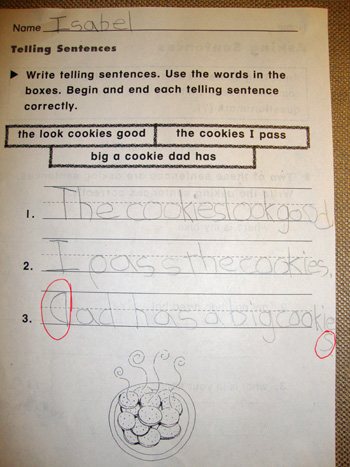 Name Isabel
Telling Sentences
▶ Write telling sentences. Use the words in the
boxes. Begin and end each telling sentence
correctly.
the look cookies good the cookies I pass
big a cookie dad has
1. The cookies look good
2. I pass the cookies.
3. Dad has a big cookie
s